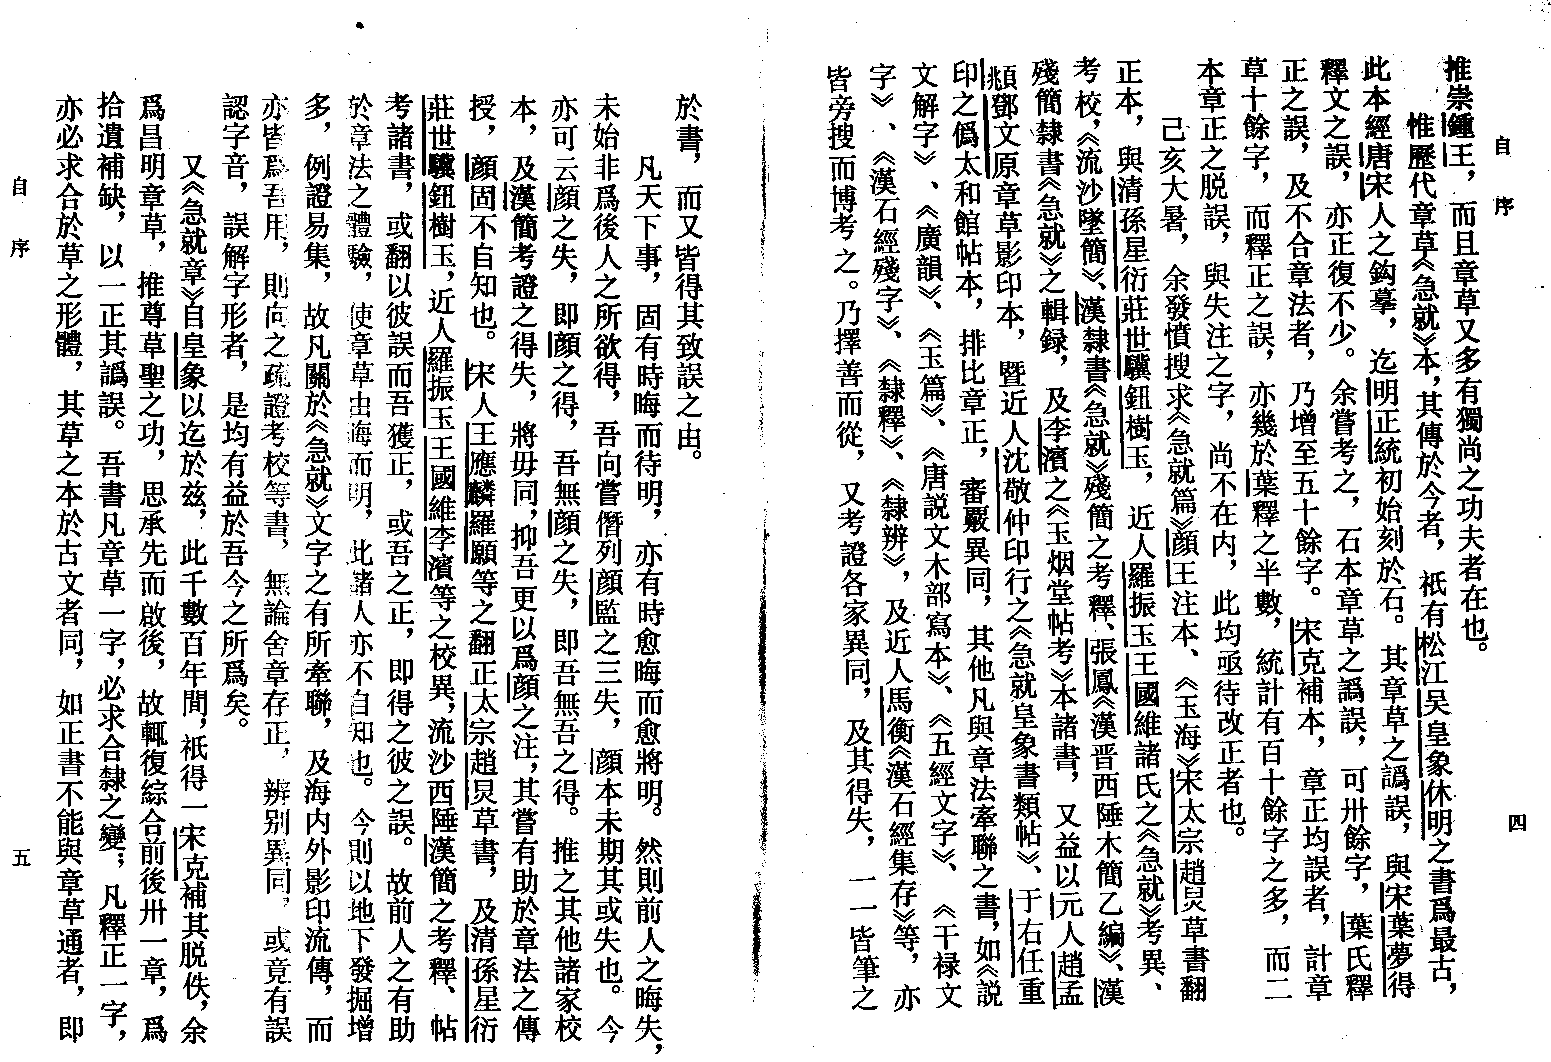 自序
四
推崇鍾王，而且章草又多有獨尚之功夫者在也。
惟歷代章草《急就》本，其傳於今者，祇有松江吴皇象休明之書爲最古，
此本經唐宋人之鈎摹，迄明正統初始刻於石。其章草之譌誤，與宋葉夢得
釋文之誤，亦正復不少。余嘗考之，石本章草之譌誤，可卅餘字，葉氏釋
正之誤，及不合章法者，乃增至五十餘字。宋克補本，章正均誤者，計章
草十餘字，而釋正之誤，亦幾於葉釋之半數，統計有百十餘字之多，而二
本章正之脱誤，與失注之字，尚不在内，此均亟待改正者也。
己亥大暑，余發憤搜求《急就篇》顔王注本、《玉海》宋太宗趙炅草書翻
正本，與清孫星衍莊世驥鈕樹玉，近人羅振玉王國維諸氏之《急就》考異、
考校，《流沙墜簡》、漢隸書《急就》殘簡之考釋、張鳳《漢晋西陲木簡乙編》、漢
殘簡隸書《急就》之輯録，及李濱之《玉烟堂帖考》本諸書，又益以元人趙孟
頫鄧文原章草影印本，暨近人沈敬仲印行之《急就皇象書類帖》、于右任重
印之僞太和館帖本，排比章正，審覈異同，其他凡與章法牽聯之書，如《説
文解字》、《廣韻》、《玉篇》、《唐説文木部寫本》、《五經文字》、《干禄文
字》、《漢石經殘字》、《隸釋》、《隸辨》，及近人馬衡《漢石經集存》等，亦
皆旁搜而博考之。乃擇善而從，又考證各家異同，及其得失，一一皆筆之
於書，而又皆得其致誤之由。
凡天下事，固有時晦而待明，亦有時愈晦而愈將明。然則前人之晦失，
未始非爲後人之所欲得，吾向嘗僭列顔監之三失，顔本未期其或失也。今
亦可云顔之失，即顔之得，吾無顔之失，即吾無吾之得。推之其他諸家校
本，及漢簡考證之得失，將毋同，抑吾更以爲顔之注，其嘗有助於章法之傳
授，顔固不自知也。宋人王應麟羅願等之翻正太宗趙炅草書，及清孫星衍
莊世驥鈕樹玉，近人羅振玉王國維李濱等之校異，流沙西陲漢簡之考釋、帖
考諸書，或翻以彼誤而吾獲正，或吾之正，即得之彼之誤。故前人之有助
於章法之體驗，使章草由晦而明，此諸人亦不自知也。今則以地下發掘增
多，例證易集，故凡關於《急就》文字之有所牽聯，及海内外影印流傳，而
亦皆爲吾用，則向之疏證考校等書，無論舍章存正，辨别異同，或竟有誤
認字音，誤解字形者，是均有益於吾今之所爲矣。
又《急就章》自皇象以迄於兹，此千數百年間，祇得一宋克補其脱佚，余
爲昌明章草，推尊草聖之功，思承先而啟後，故輒復綜合前後卅一章，爲
拾遺補缺，以一正其譌誤。吾書凡章草一字，必求合隸之變；凡釋正一字，
亦必求合於草之形體，其草之本於古文者同，如正書不能與章草通者，即
自序
五